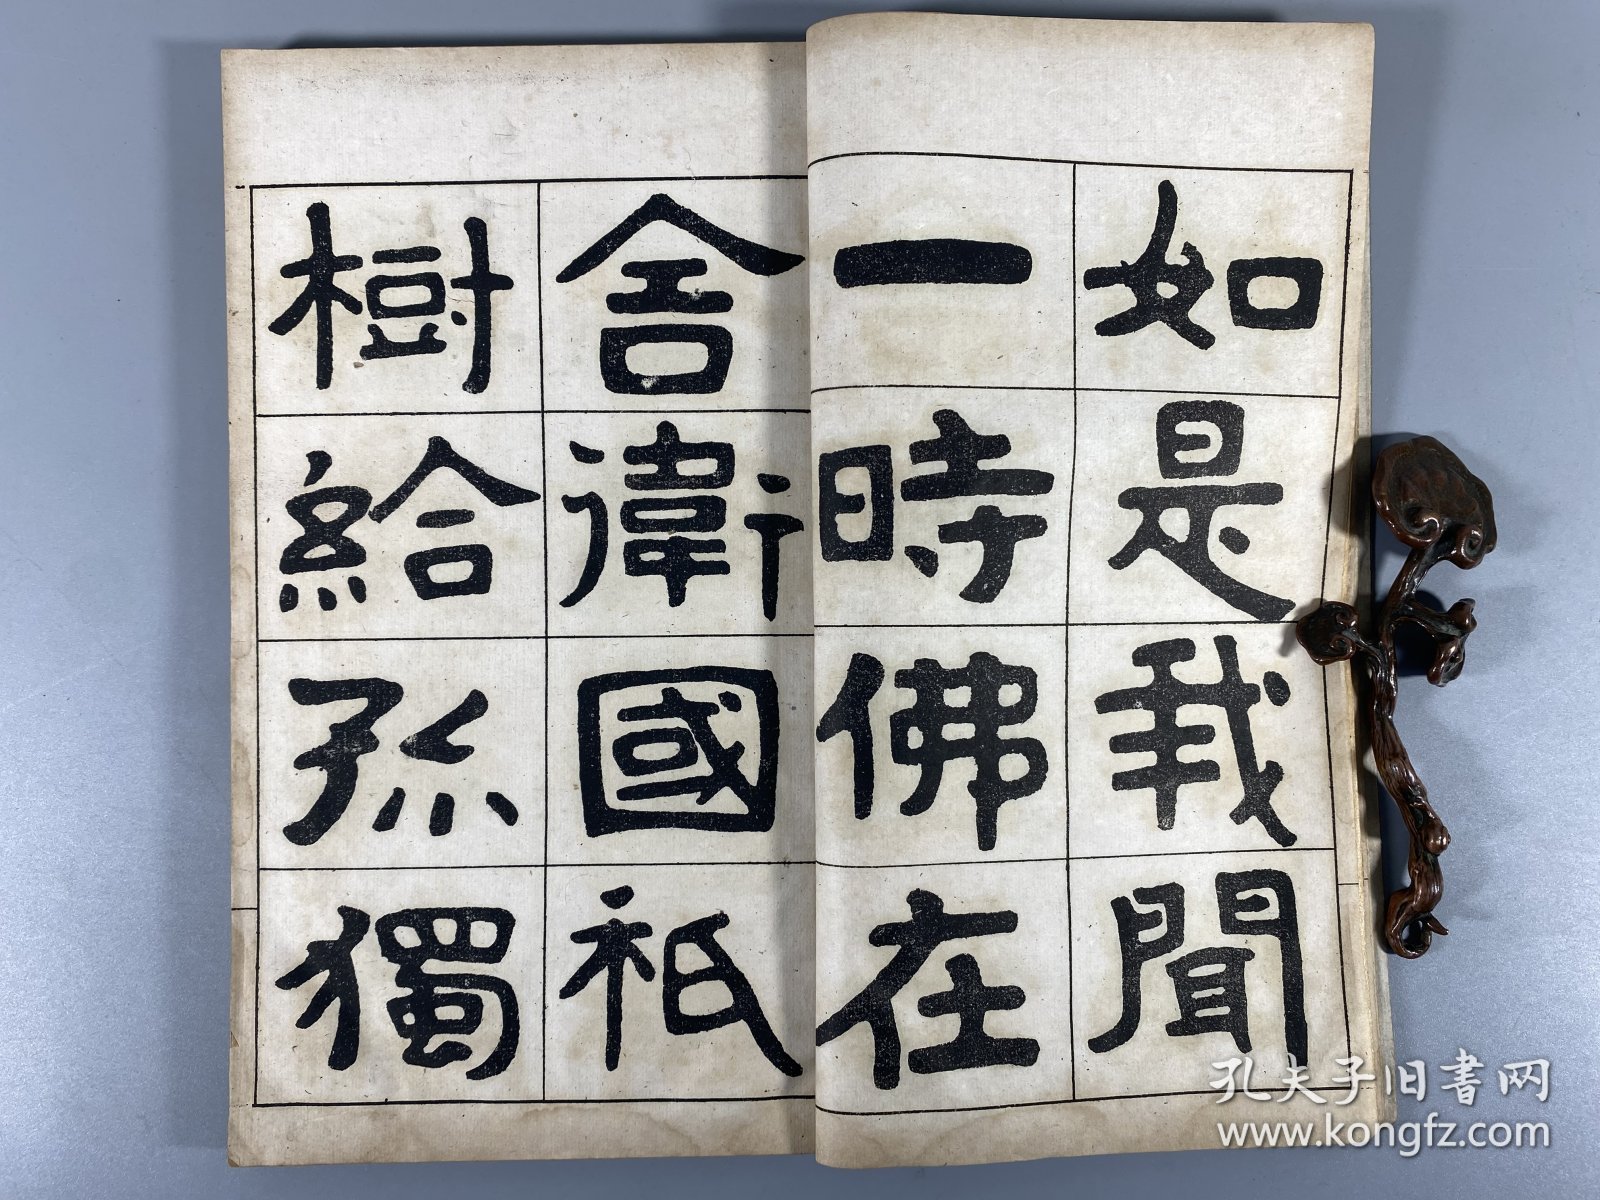 如是我聞
一時佛在
舍衛國祇
樹給孤獨
孔夫子旧書网
www.kongfz.com